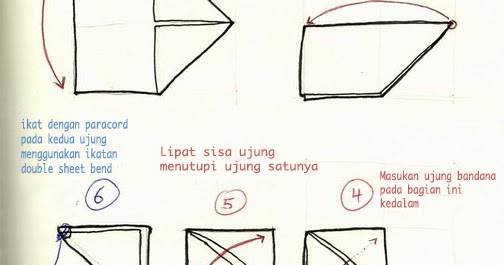 ikat dengan paracord
pada kedua ujung
menggunakan ikatan
double sheet bend
Lipat sisa ujung
menutupi ujung satunya
Masukan ujung bandana
pada bagian ini
kedalam
6
5
4